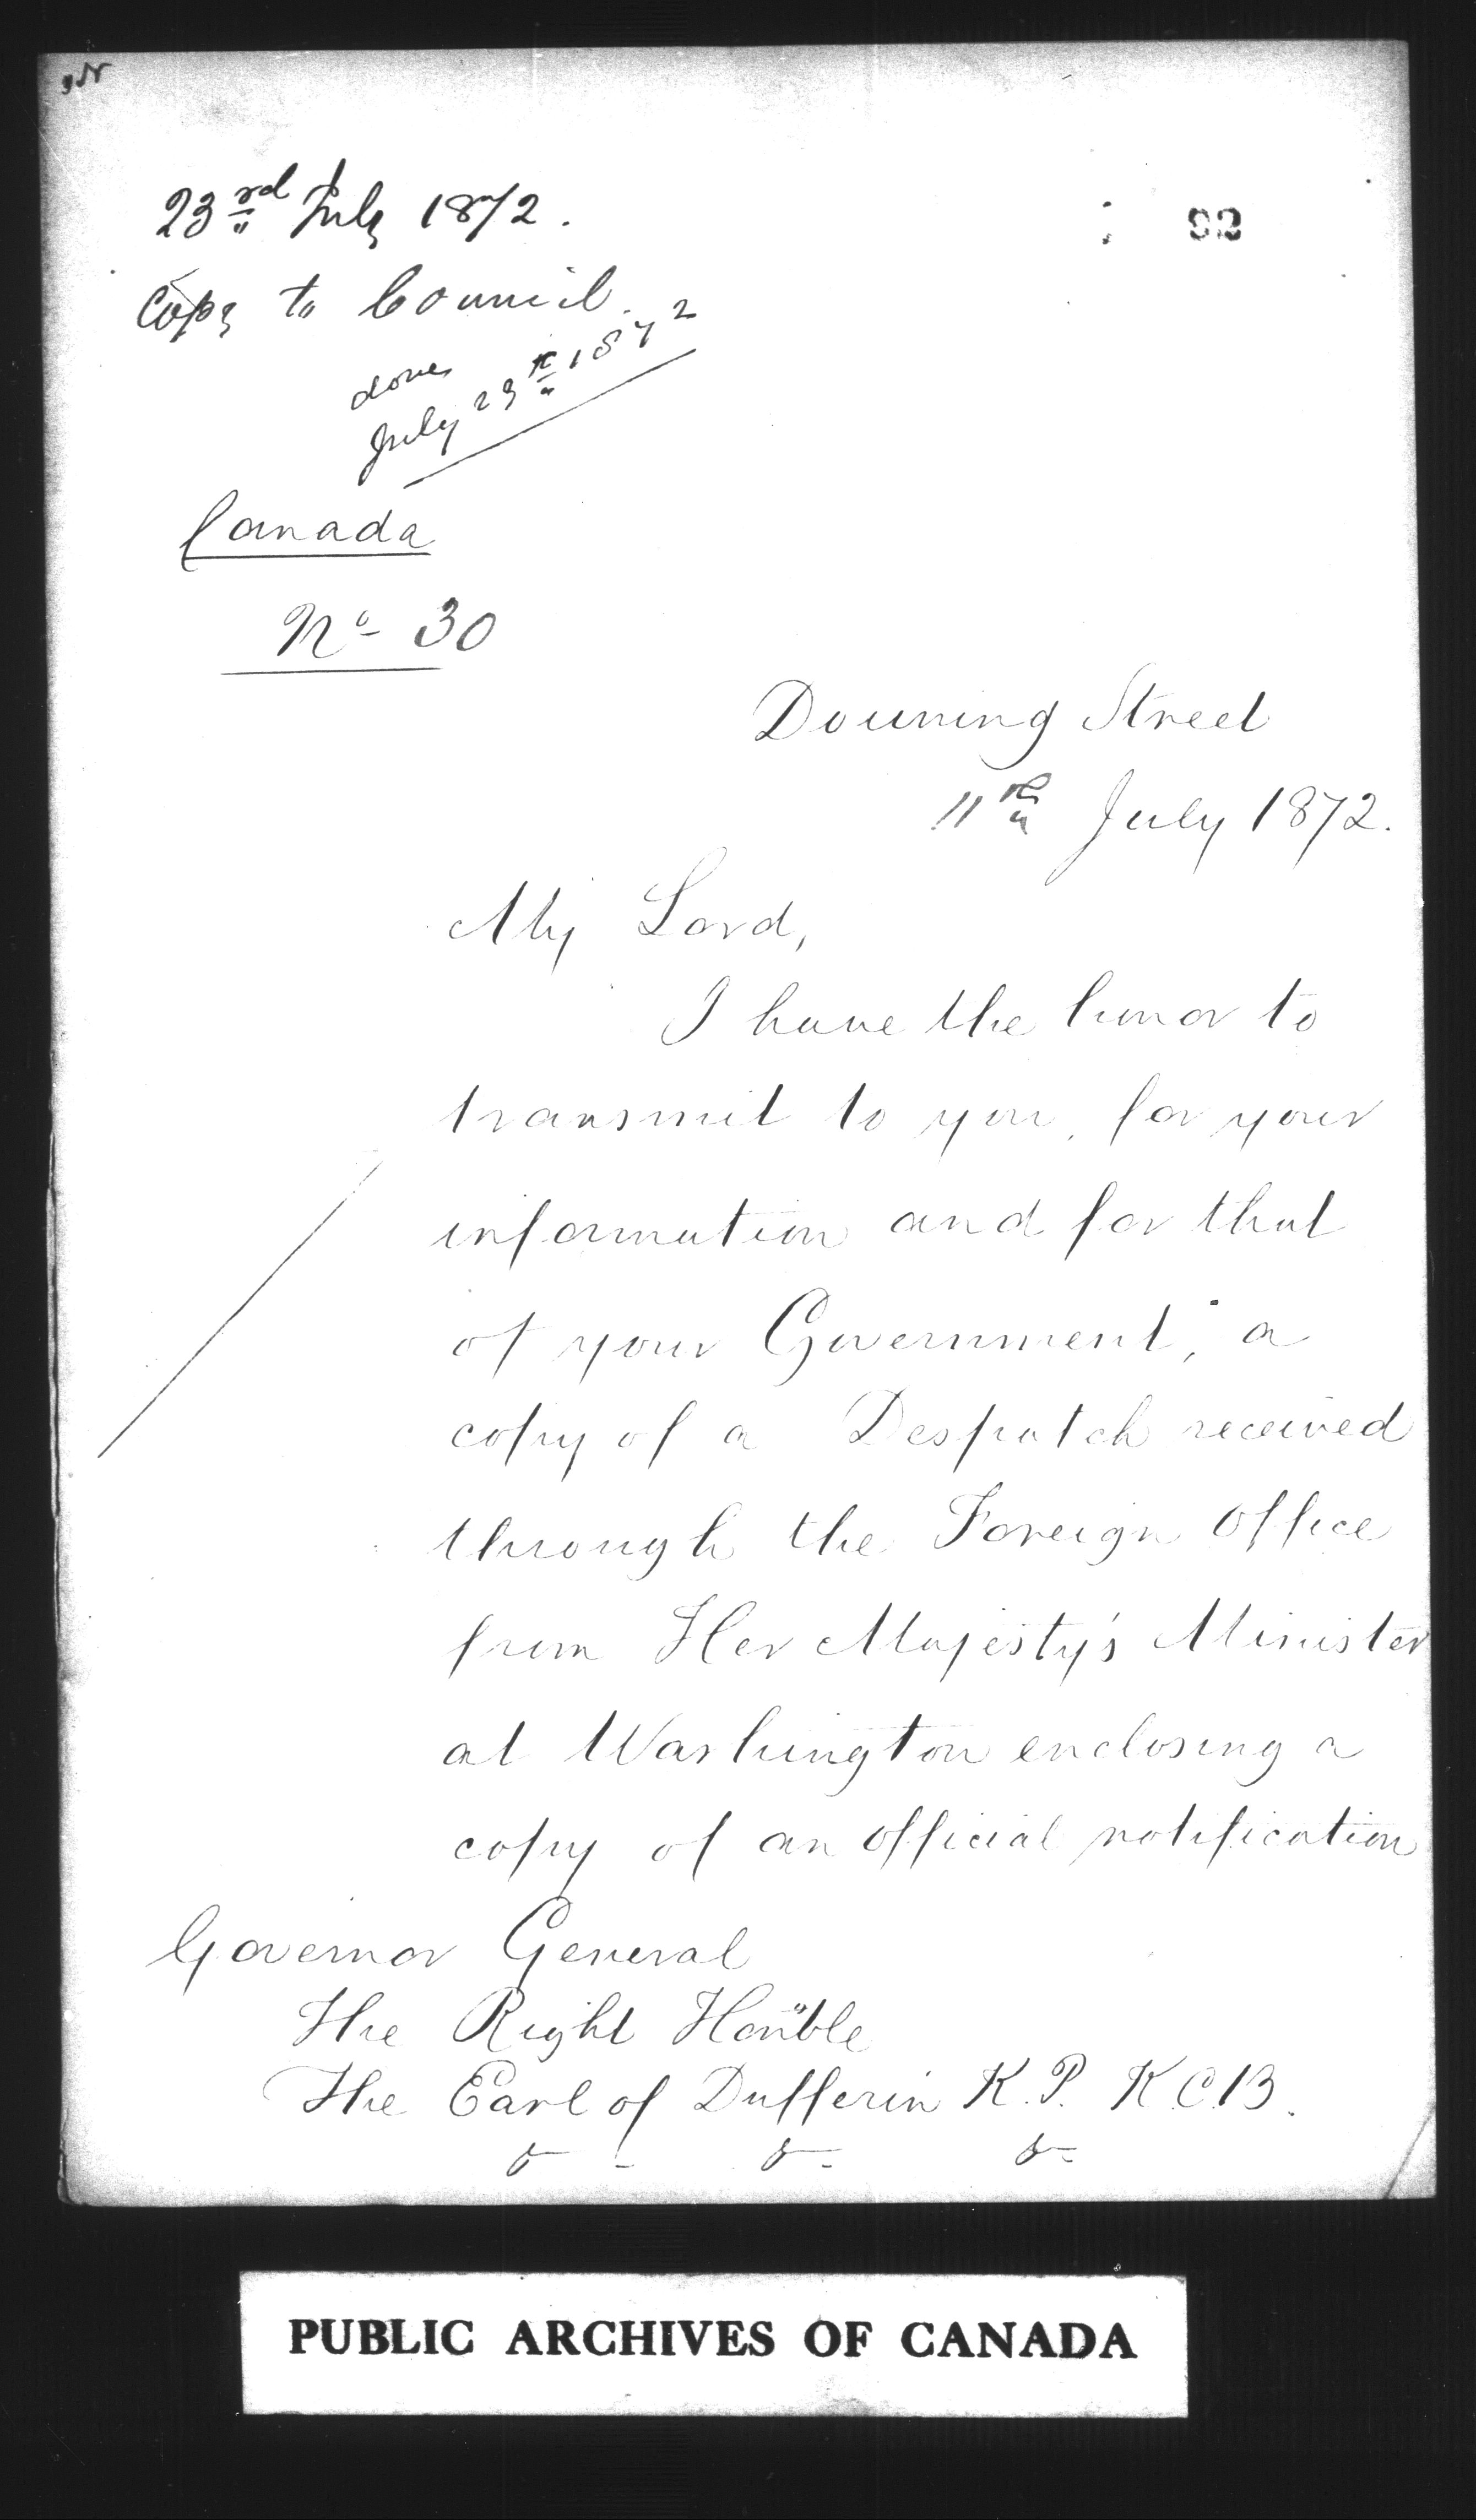 23rd July 1872.
92
Copy to Council.
done
July 23rd 1872
Canada
No 30
Downing Street
11th July 1872.
My Lord,
I have the honor to
transmit to you, for your
information and for that
of your Government, a
copy of a Despatch received
through the Foreign Office
from Her Majesty's Minister
at Washington enclosing a
copy of an official notification
Governor General
The Right Honble
The Earl of Dufferin K.P. K.C.B.
&c &c &c
PUBLIC ARCHIVES OF CANADA